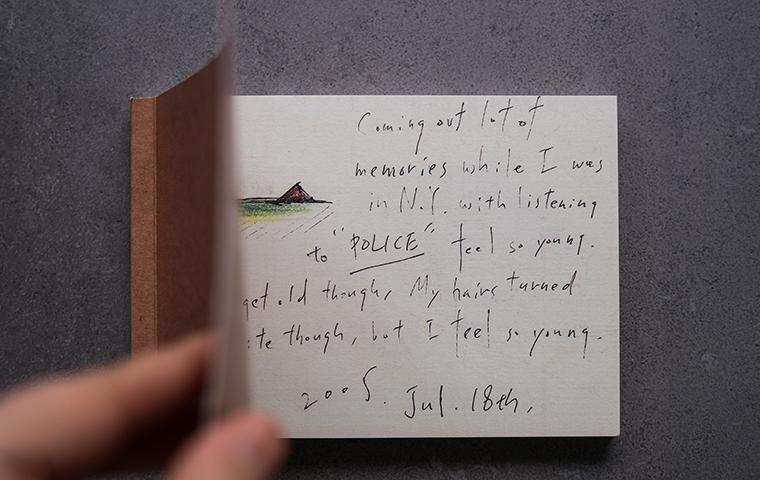 Coming out lot of
memories while I was
in N.Y. with listening
to "POLICE" feel so young.
get old though, My hairs turned
though, but I feel so young.
2005. Jul. 18th,